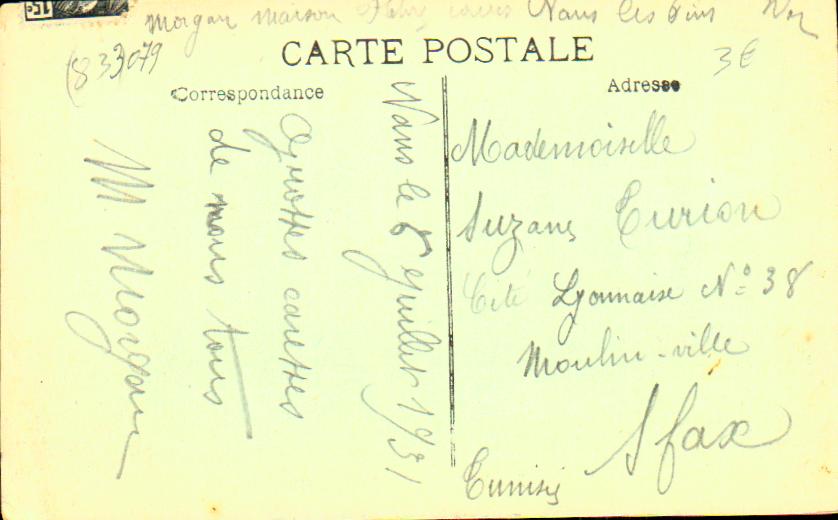 15c
Morgan maison Nans les Pins Var
(83)079
CARTE POSTALE
3€
Correspondance
Adresse
Nans le 6 juillet 1931
Grosses caresses
de nous tous
M Morgan
Mademoiselle
Suzane Turion
Cité Lyonnaise N° 38
Moulin-ville
Sfax
Tunisie